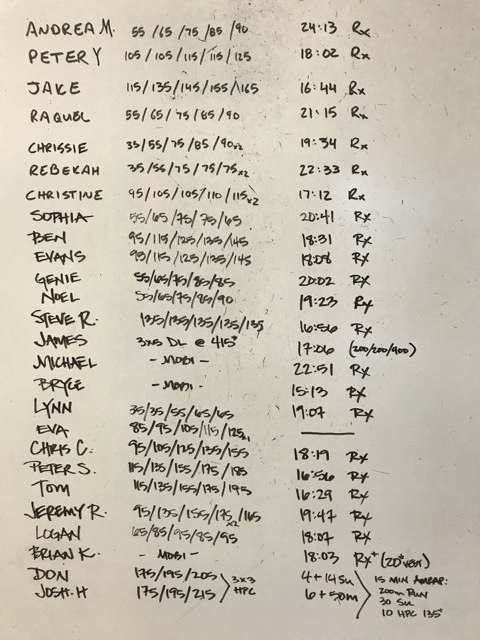 ANDREA M. 55/65/75/85/90 24:13 Rx
PETER Y 105/105/115/115/125 18:02 Rx
JAKE 115/135/145/155/165 16:44 Rx
RAQUEL 55/65/75/85/90 21:15 Rx
CHRISSIE 35/55/75/85/90x2 19:54 Rx
REBEKAH 35/55/75/75/75x2 22:33 Rx
CHRISTINE 95/105/105/110/115x2 17:12 Rx
SOPHIA 55/65/75/75/65 20:41 Rx
BEN 95/115/125/135/145 18:31 Rx
EVANS 95/115/125/135/145 18:08 Rx
GENIE 55/65/75/85/85 20:02 Rx
NOEL 55/65/75/85/90 19:23 Rx
STEVE R. 135/135/135/135/135 16:56 Rx
JAMES 3x5 DL @ 415# 17:06 (200/200/400)
MICHAEL - MOBI - 22:51 Rx
BRYCE - MOBI - 15:13 Rx
LYNN 35/35/55/65/65 19:07 Rx
EVA 85/95/105/115/125x1
CHRIS C. 95/105/125/135/155 18:19 Rx
PETER S. 115/135/155/175/185 16:56 Rx
TOM 115/135/155/175/195 16:29 Rx
JEREMY R. 95/135/155/175x2/165 19:47 Rx
LOGAN 65/85/95/95/95 18:07 Rx
BRIAN K. - MOBI - 18:03 Rx+ (20# VEST)
DON 175/195/205 3x3 4+14 SU 15 MIN AMRAP:
JOSH. H 175/195/215 HPC 6+50m 200m RUN
30 SU
10 HPC 135#